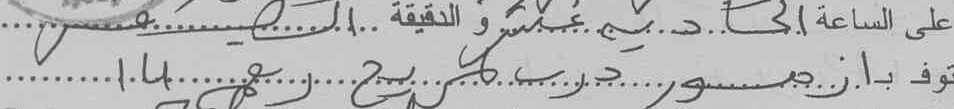 على الساعة الحادية عشر و الدقيقة الصفر
توفى بـ ازمور درب كريح رقم 14